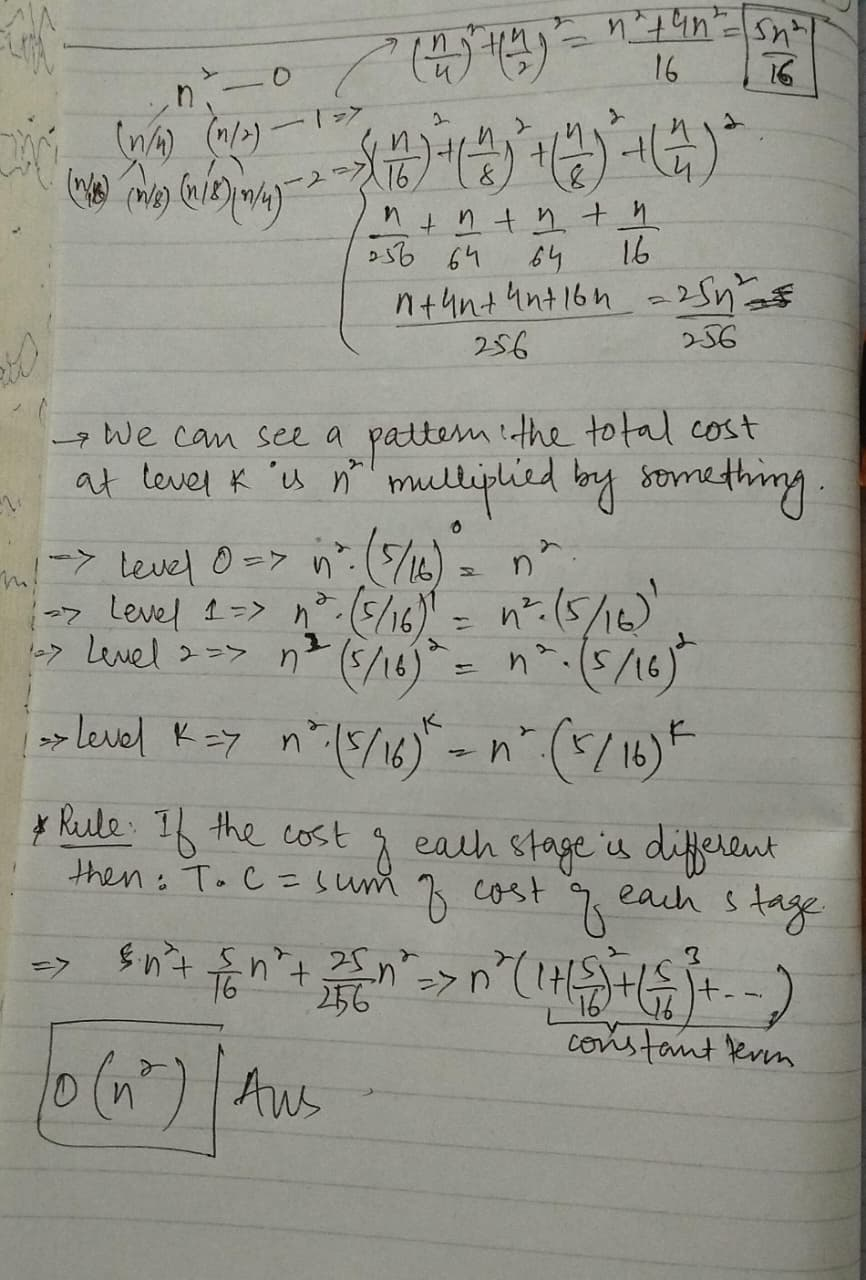 (n/4)² + (n/2)² = (n² + 4n²)/16 = 5n²/16
n² — 0
(n/4) (n/2) — 1 =>
(n/16) (n/8) (n/8) (n/4) — 2 => (n/16)² + (n/8)² + (n/8)² + (n/4)²
n/256 + n/64 + n/64 + n/16
(n + 4n + 4n + 16n)/256 = 25n²/256
→ We can see a pattern: the total cost
at level K is n² multiplied by something.
=> Level 0 => n².(5/16)⁰ = n².
=> Level 1 => n².(5/16)¹ = n².(5/16)¹
=> Level 2 => n² (5/16)² = n².(5/16)²
=> Level K => n².(5/16)ᴷ = n².(5/16)ᴷ
* Rule: If the cost of each stage is different
then: T.C = sum of cost of each stage.
=> n² + 5/16 n² + 25/256 n² => n²(1+(5/16)²+(5/16)³+---)
constant term
O(n²) Ans